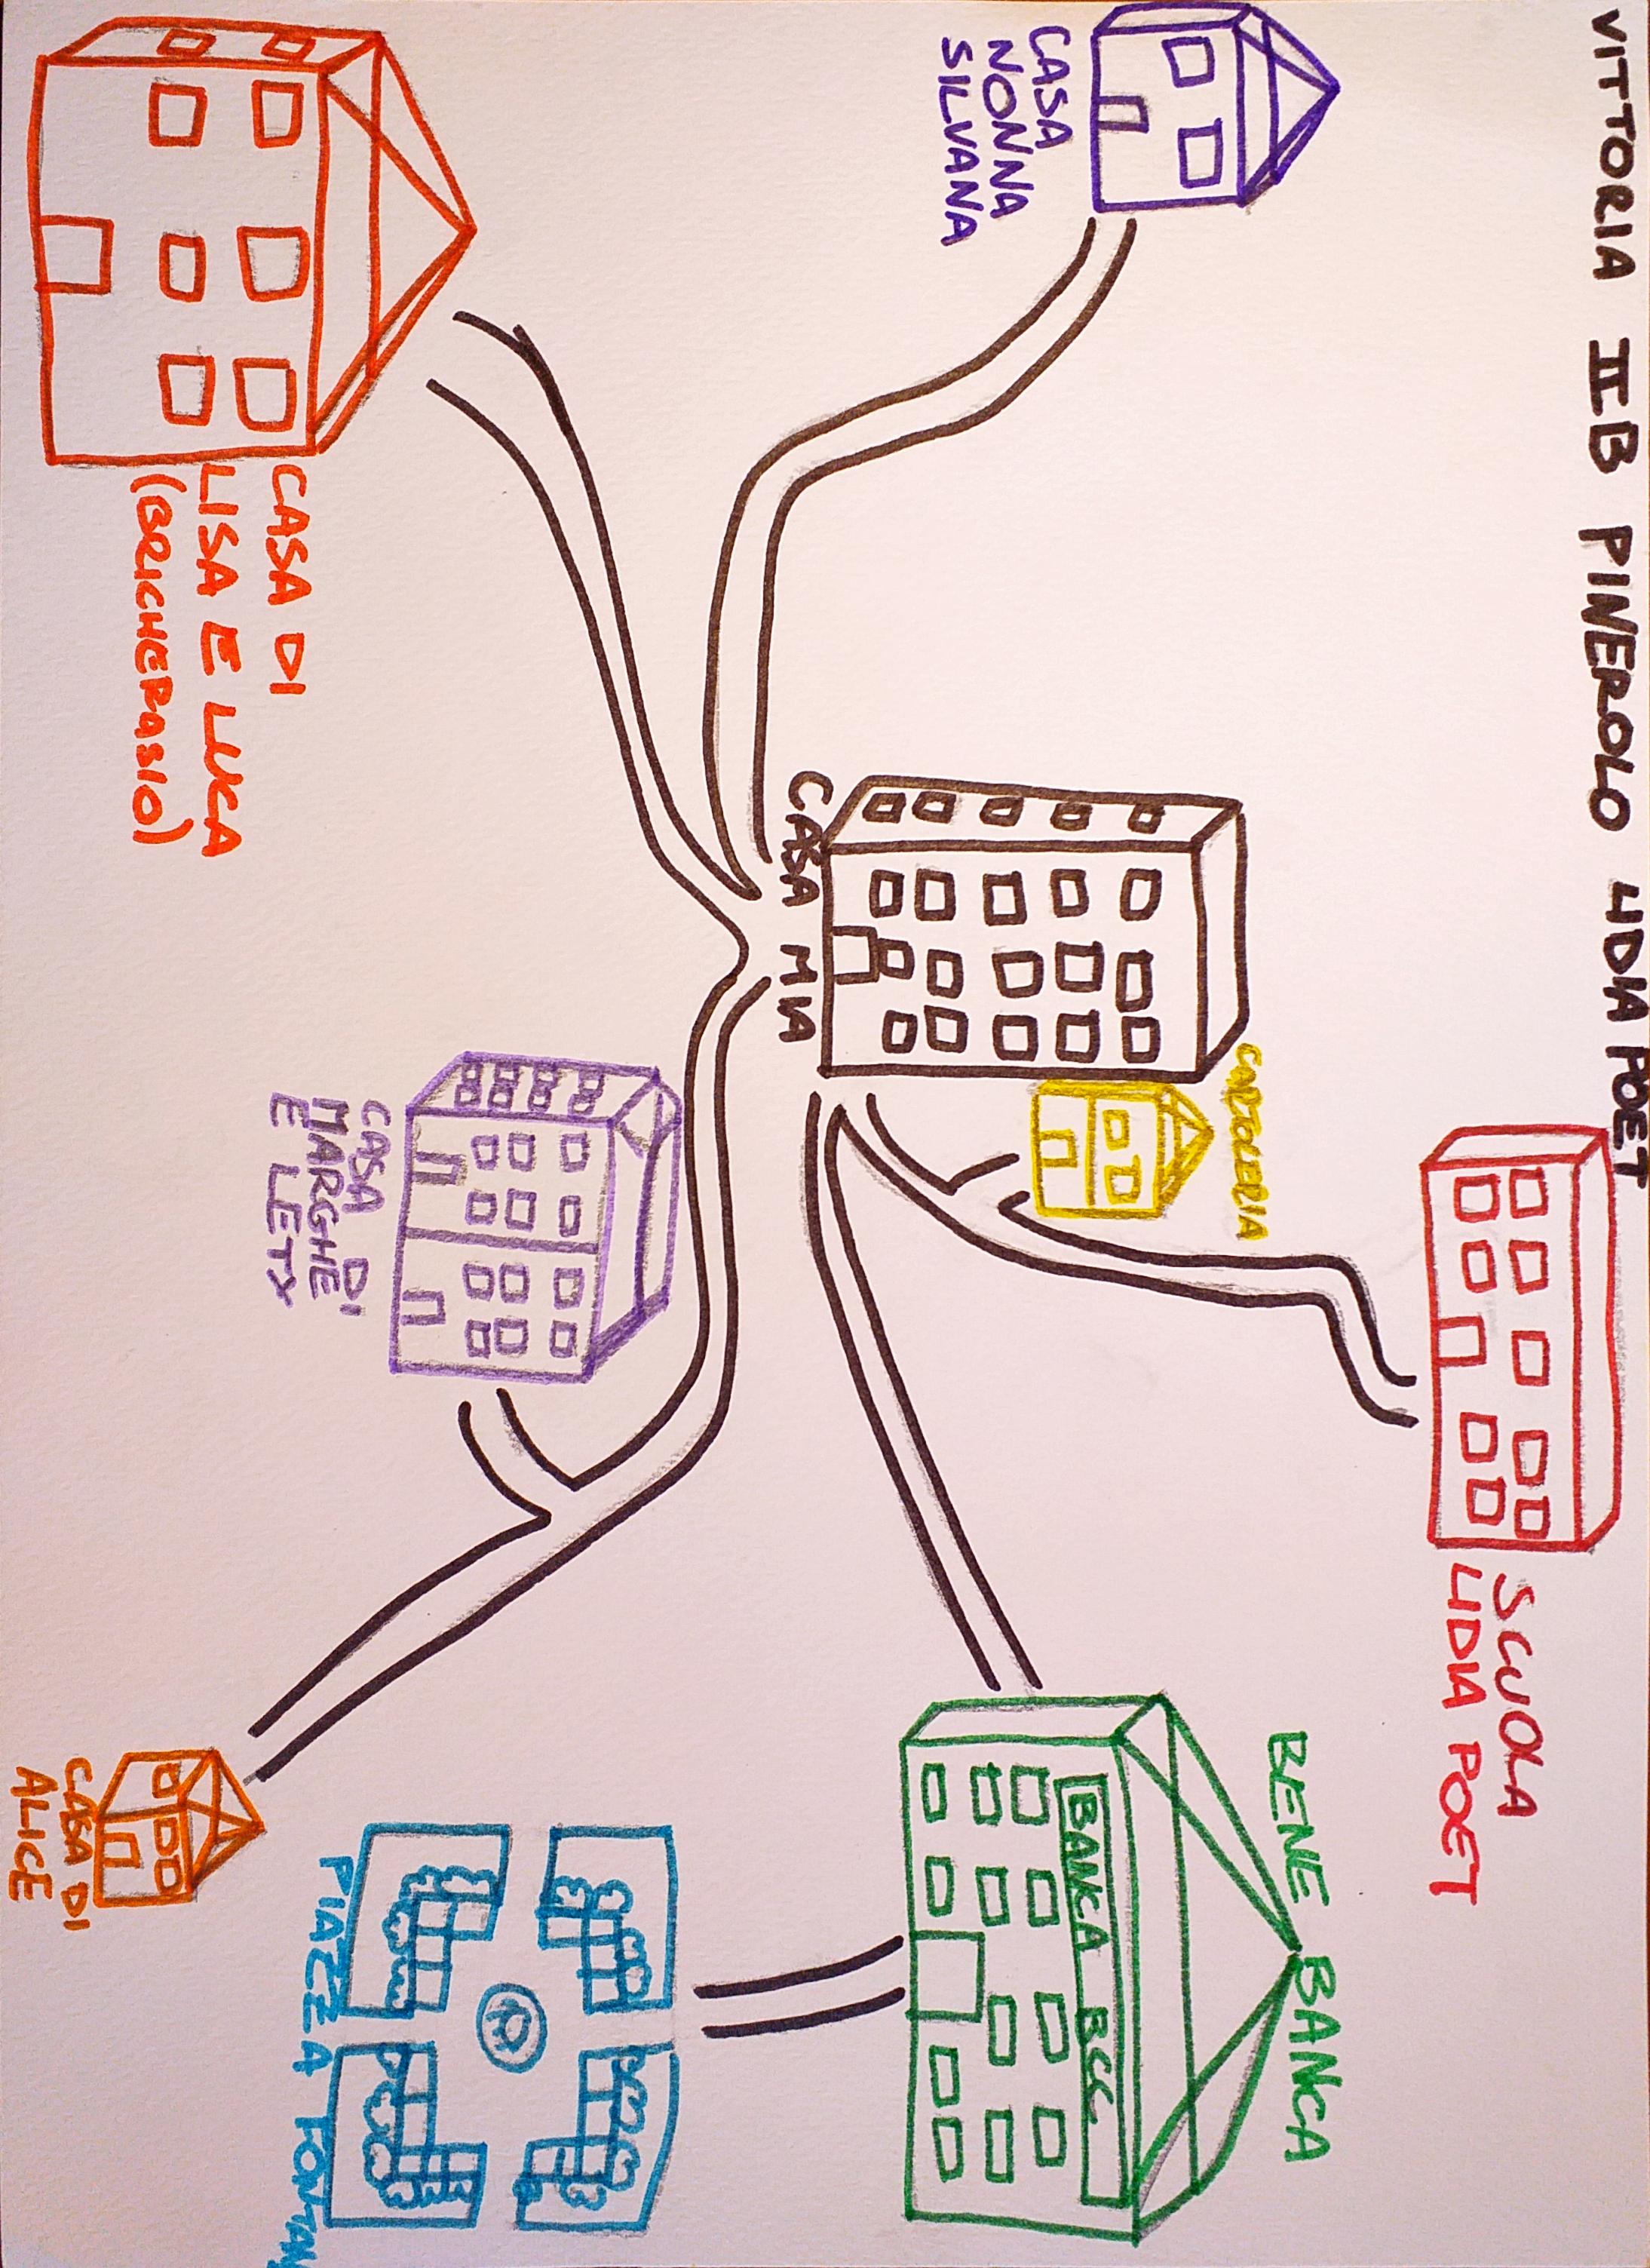 VITTORIA II B PINEROLO LIDIA POET
CASA
NONNA
SILVANA
CARTOLERIA
SCUOLA
LIDIA POET
BENE BANCA
BANCA BCC
CASA MIA
CASA DI
LISA E LUCA
(BRICHERASIO)
CASA DI
MARGHE
E LETY
PIAZZA FONTANA
CASA DI
ALICE